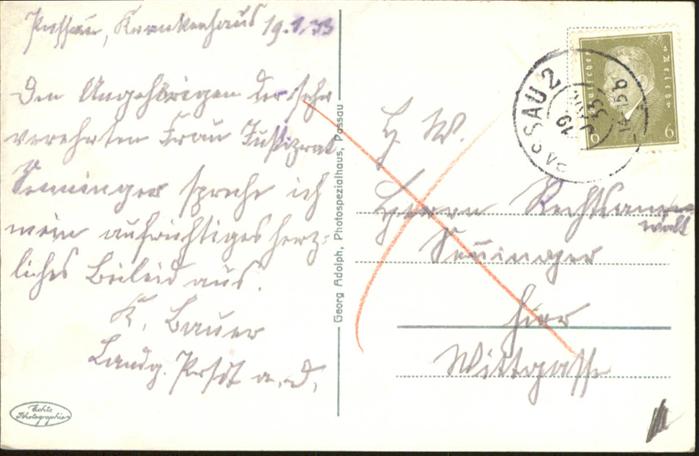 Passau, Krankenhaus 19.1.33
Den Angehörigen der sehr
verehrten Frau Justizrat
Senninger spreche ich
mein aufrichtiges herz-
liches Beileid aus.
K. Bauer
Landg. Prsdt a. d.
Georg Adolph, Photospezialhaus, Passau
Echte
Photographie
PASSAU 2
19
33
6 6
H W.
Herrn Rechtsan-
walt
Senninger
hier
Wittgasse